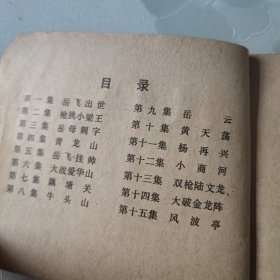 目录
第一集 岳飞出世
第二集 枪挑小梁王
第三集 岳母刺字
第四集 青龙山
第五集 岳飞挂帅
第六集 大战爱华山
第七集 藕塘关
第八集 牛头山
第九集 岳云
第十集 黄天荡
第十一集 杨再兴
第十二集 小商河
第十三集 双枪陆文龙
第十四集 大破金龙阵
第十五集 风波亭